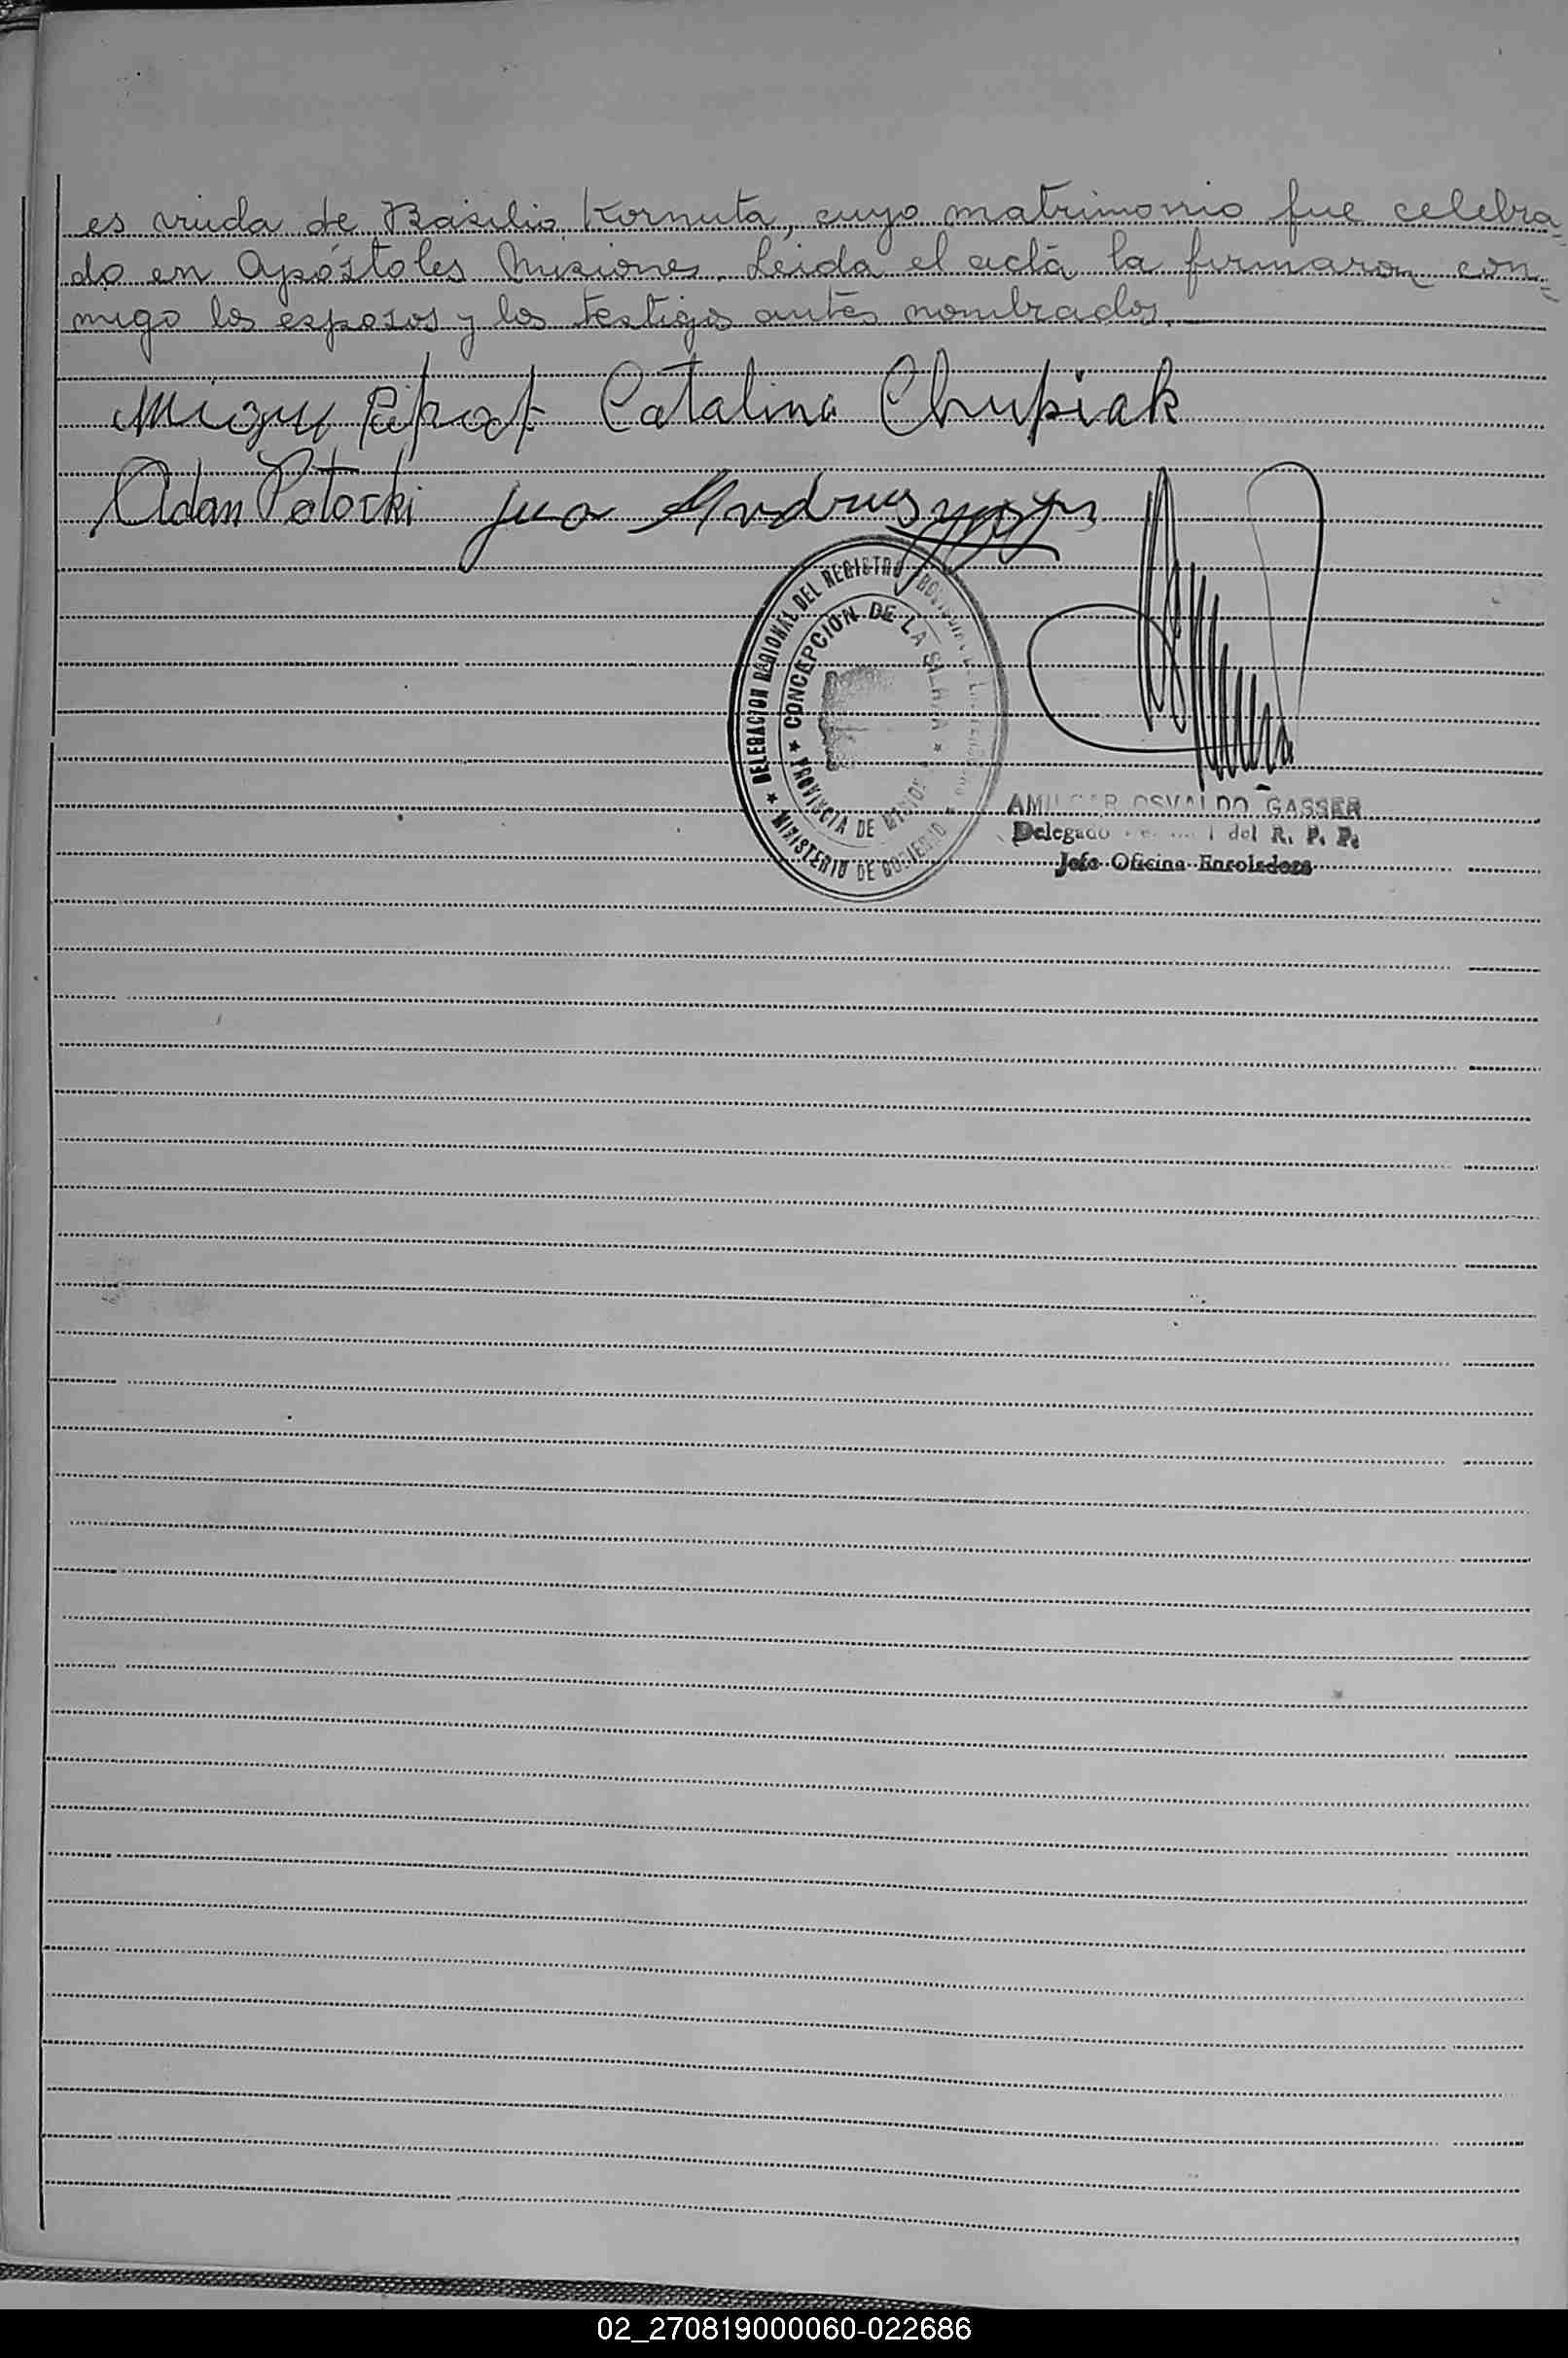 es viuda de Basilio Kornuta, cuyo matrimonio fue celebra=
do en Apóstoles Misiones. Leída el acta la firmaron con=
migo los esposos y los testigos antes nombrados.
Catalina Chupiak
Adan Potocki
DELEGACION REGIONAL DEL REGISTRO
MINISTERIO DE GOBIERNO
CONCEPCION DE LA SIERRA
PROVINCIA DE MISIONES
AMILCAR OSVALDO GASSER
Delegado del R. P. P.
Jefe Oficina Enroladora
02_270819000060-022686